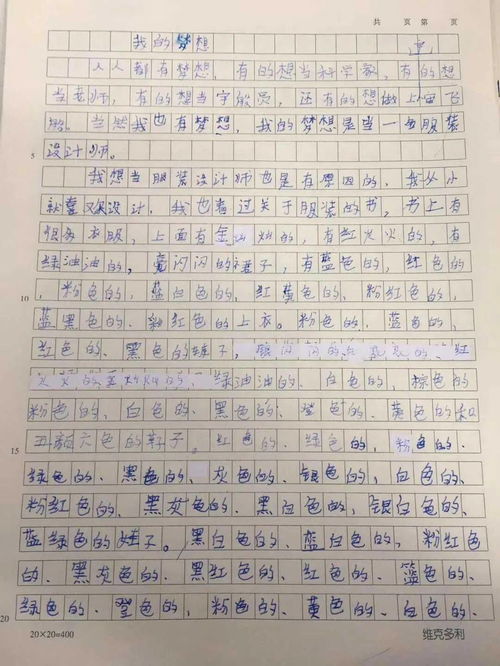 共 页 第 页
我的梦想
人人都有梦想，有的想当科学家，有的想
当老师，有的想当宇航员，还有的想做上宙飞
船。当然我也有梦想，我的梦想是当一每服装
5 设计师。
我想当服装设计师也是有原因的，我从小
就喜欢设计，我也看过关于服装的书，书上有
很多衣服，上面有金灿灿的，有红火火的，有
绿油油的，闪闪的裙子，有蓝色的，红色的
10 ，粉色的，蓝白色的，红黄色的，粉红色的
蓝黑色的、粉红色的上衣。粉色的，蓝色的，
红色的、黑色的裤子，银闪闪的、的、红
火火的、灿灿的、绿油油的、白色的，棕色的
粉色的，白色的、黑色的、登色的、黄色的和
15 五颜六色的鞋子。红色的、绿色的，粉色的、
绿色的、黑色的、灰色的、银色的，白色的，
粉红色的、黑灰色的、黑白色的，银白色的、
蓝绿色的娃子。黑白色的、蓝白色的，粉红色
的、黑灰色的、黑红色的、红色的、篮色的、
20 绿色的、登色的，粉色的、黄色的、白色的、
20×20=400 维克多利